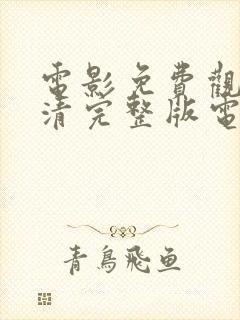 電影免費觀
清完整版電
青鳥飛魚